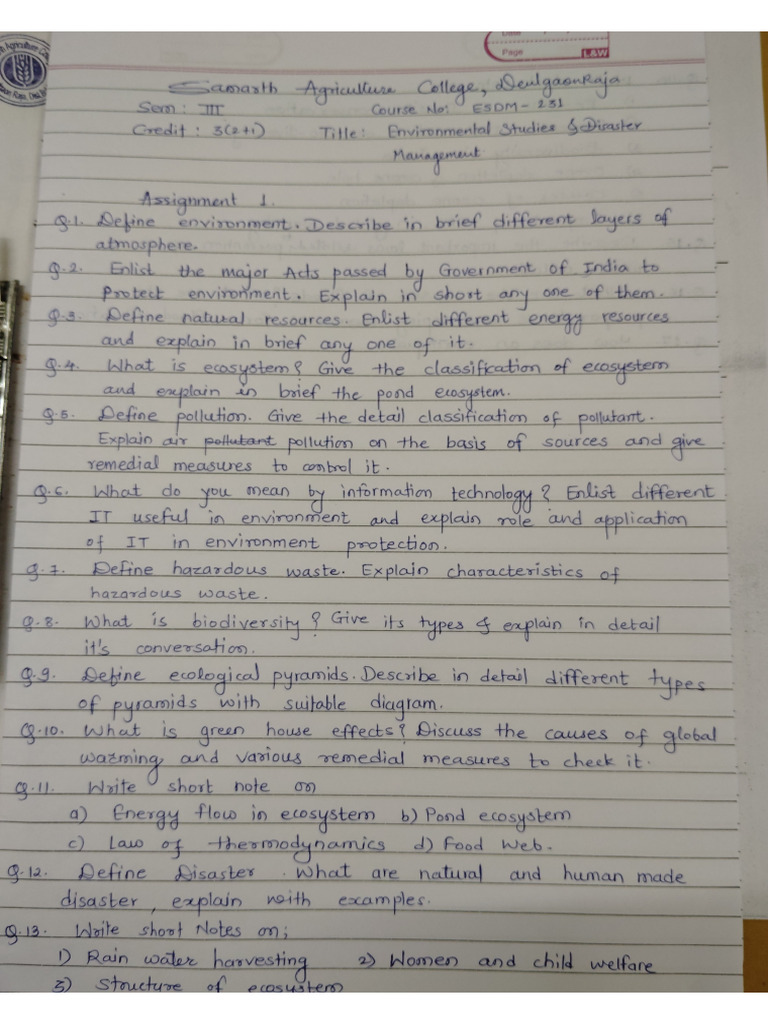 Date
Page L&W
Samarth Agriculture College, DeulgaonRaja
Sem: III Course No: ESDM-231
Credit: 3(2+1) Title: Environmental Studies & Disaster
Management
Assignment 1.
Q.1. Define environment. Describe in brief different layers of
atmosphere.
Q.2. Enlist the major Acts passed by Government of India to
Protect environment. Explain in short any one of them.
Q.3. Define natural resources. Enlist different energy resources
and explain in brief any one of it.
Q.4. What is ecosystem? Give the classification of ecosystem
and explain in brief the pond ecosystem.
Q.5. Define pollution. Give the detail classification of pollutant.
Explain air pollutant pollution on the basis of sources and give
remedial measures to control it.
Q.6. What do you mean by information technology? Enlist different
IT useful in environment and explain role and application
of IT in environment protection.
Q.7. Define hazardous waste. Explain characteristics of
hazardous waste.
Q.8. What is biodiversity? Give its types & explain in detail
it's conversation.
Q.9. Define ecological pyramids. Describe in detail different types
of pyramids with suitable diagram.
Q.10. What is green house effects? Discuss the causes of global
warming and various remedial measures to check it.
Q.11. Write short note on
a) Energy flow in ecosystem b) Pond ecosystem
c) Law of thermodynamics d) Food Web.
Q.12. Define Disaster. What are natural and human made
disaster, explain with examples.
Q.13. Write short Notes on;
1) Rain water harvesting 2) Women and child welfare
3) Structure of ecosystem